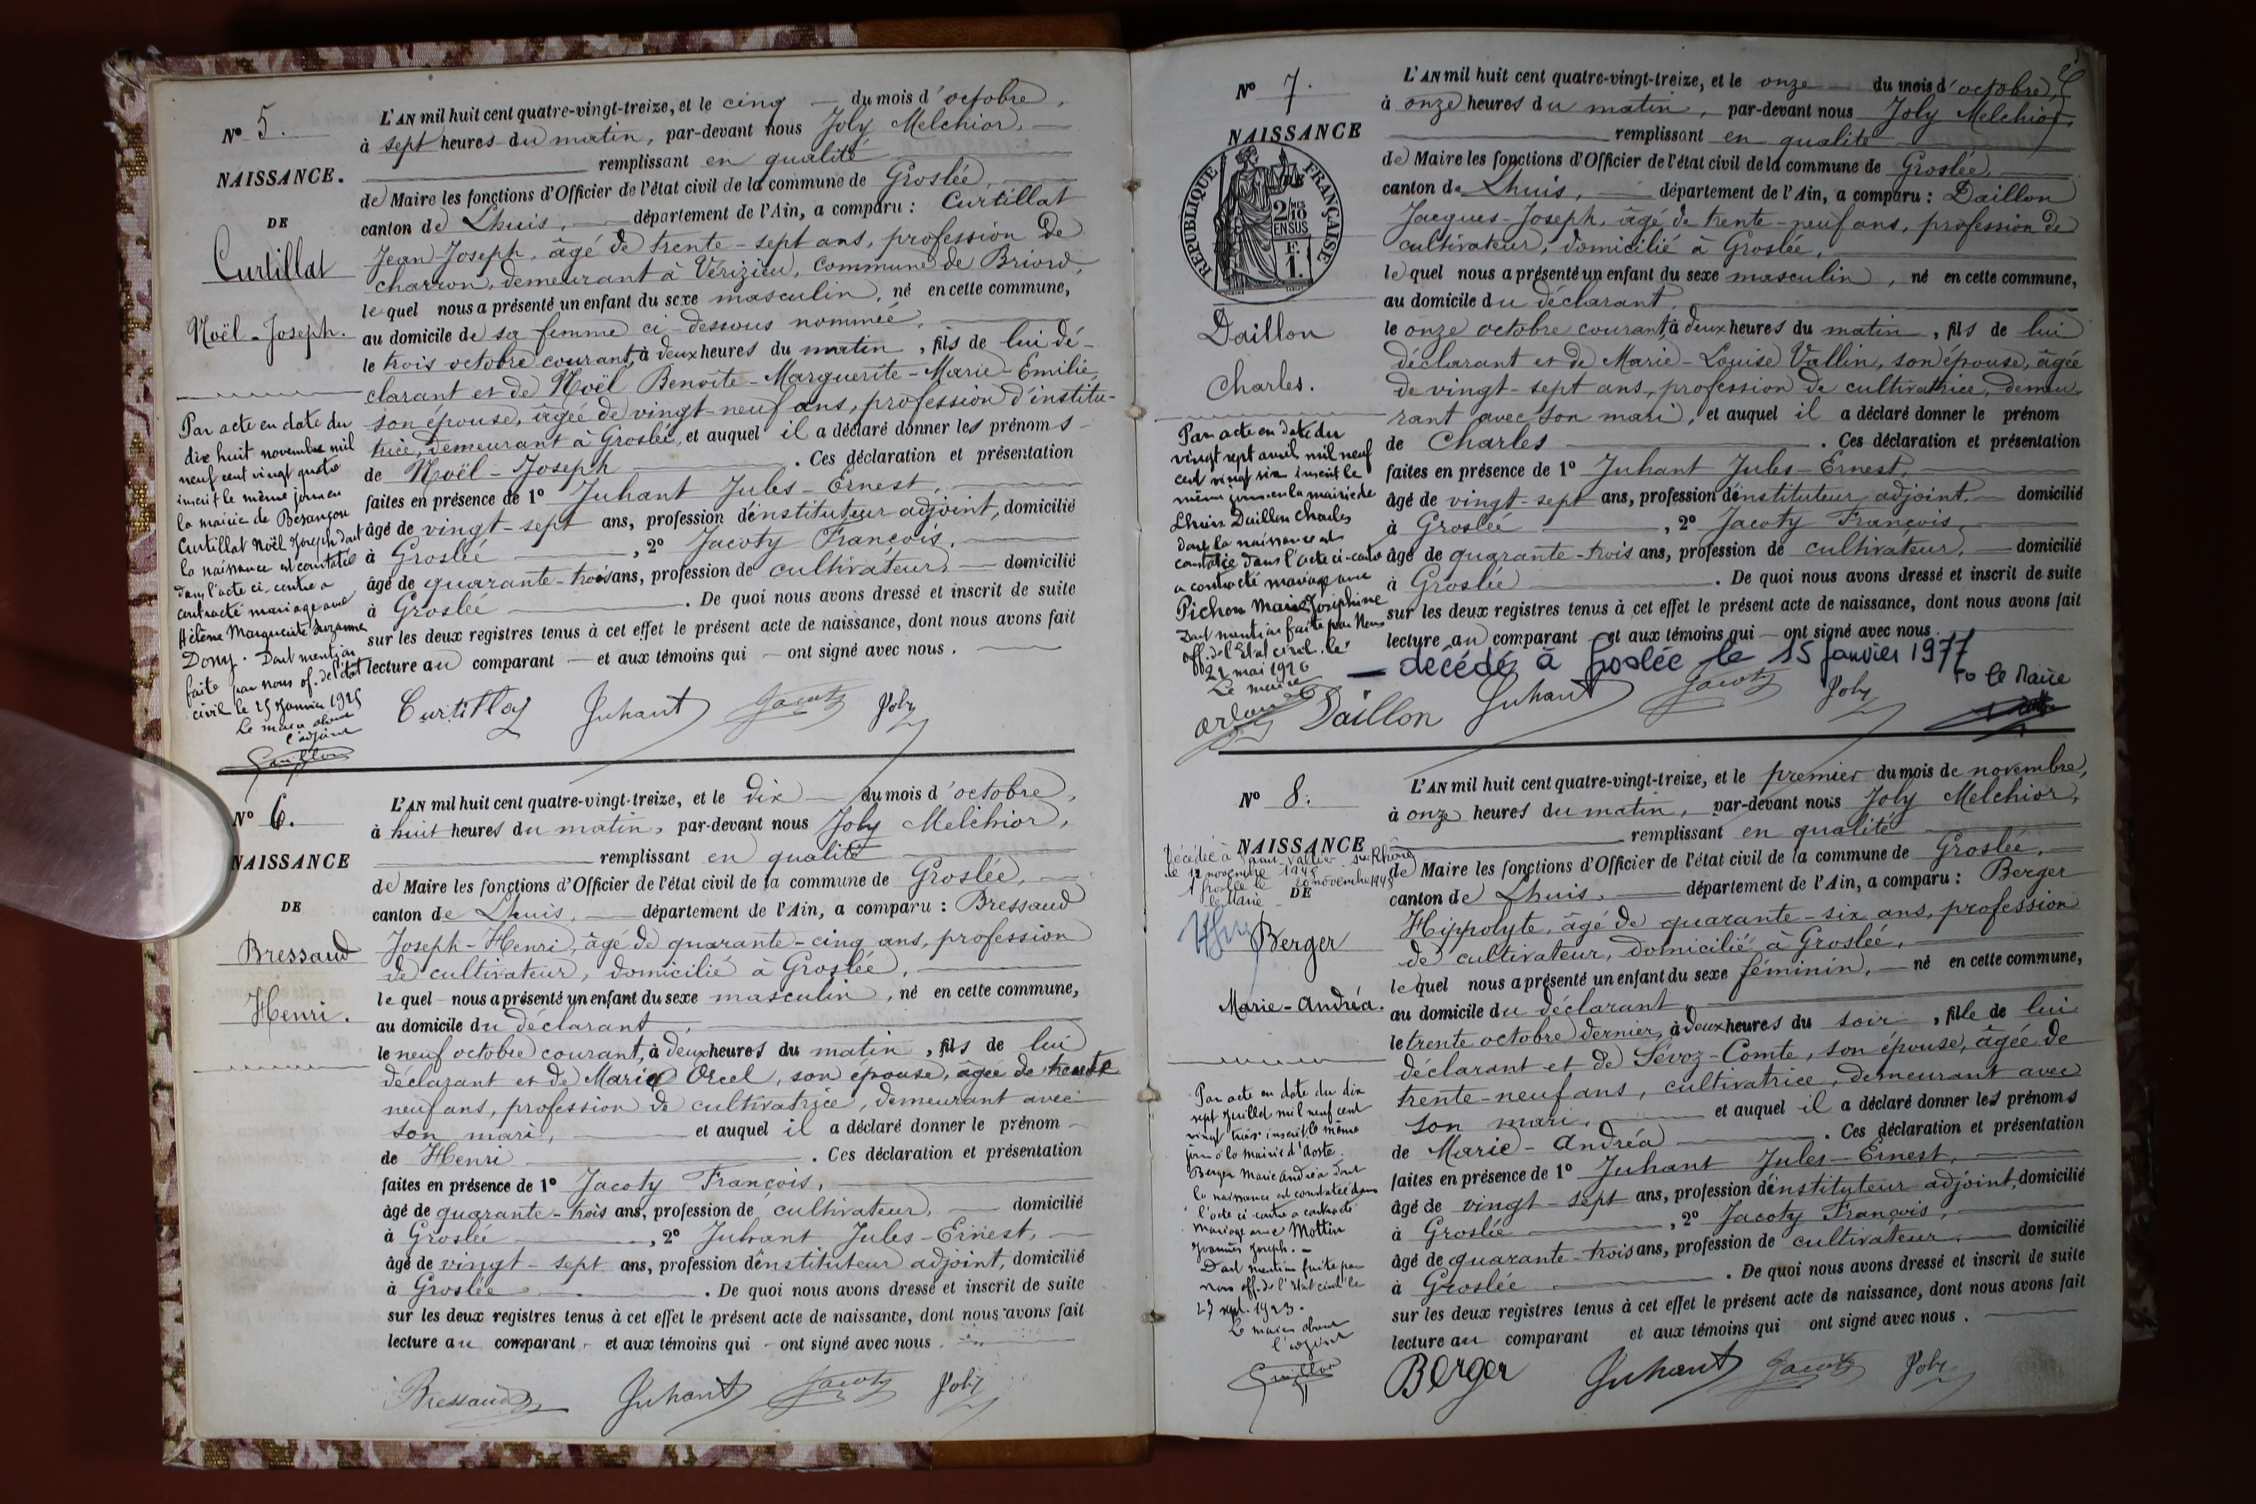 N° 5.
NAISSANCE.
DE
Curtillat
Noël-Joseph.
Par acte en date du
dix huit novembre mil
neuf cent vingt quatre
inscrit le même jour en
la mairie de Besançon
Curtillat Noël Joseph dont
la naissance est constatée
dans l'acte ci-contre a
contracté mariage avec
Hélène Marguerite Suzanne
Dony. Dont mention
faite par nous of. de l'état
civil le 25 Janvier 1925
Le maire absent
l'adjoint
L'AN mil huit cent quatre-vingt-treize, et le cinq du mois d'octobre,
à sept heures du matin, par-devant nous Joly Melchior,
remplissant en qualité
de Maire les fonctions d'Officier de l'état civil de la commune de Groslée,
canton de Lhuis, département de l'Ain, a comparu : Curtillat
Jean Joseph, âgé de trente-sept ans, profession de
charron, demeurant à Vérizieu, commune de Briord,
lequel nous a présenté un enfant du sexe masculin, né en cette commune,
au domicile de sa femme ci-dessous nommée,
le trois octobre courant, à deux heures du matin, fils de lui dé-
clarant et de Noël Benoîte-Marguerite-Marie-Emilie,
son épouse, âgée de vingt-neuf ans, profession d'institu-
trice, demeurant à Groslée, et auquel il a déclaré donner les prénoms
de Noël-Joseph. Ces déclaration et présentation
faites en présence de 1° Juhant Jules-Ernest,
âgé de vingt-sept ans, profession d'instituteur adjoint, domicilié
à Groslée, 2° Jacoty François,
âgé de quarante-trois ans, profession de cultivateur, domicilié
à Groslée. De quoi nous avons dressé et inscrit de suite
sur les deux registres tenus à cet effet le présent acte de naissance, dont nous avons fait
lecture au comparant et aux témoins qui ont signé avec nous.
Curtillat Juhant Jacoty Joly
N° 6.
NAISSANCE
DE
Bressaud
Henri.
L'AN mil huit cent quatre-vingt-treize, et le dix du mois d'octobre,
à huit heures du matin, par-devant nous Joly Melchior,
remplissant en qualité
de Maire les fonctions d'Officier de l'état civil de la commune de Groslée,
canton de Lhuis, département de l'Ain, a comparu : Bressaud
Joseph-Henri, âgé de quarante-cinq ans, profession
de cultivateur, domicilié à Groslée,
lequel nous a présenté un enfant du sexe masculin, né en cette commune,
au domicile du déclarant,
le neuf octobre courant, à deux heures du matin, fils de lui
déclarant et de Marie Orcel, son épouse, âgée de trente
neuf ans, profession de cultivatrice, demeurant avec
son mari, et auquel il a déclaré donner le prénom
de Henri. Ces déclaration et présentation
faites en présence de 1° Jacoty François,
âgé de quarante-trois ans, profession de cultivateur, domicilié
à Groslée, 2° Juhant Jules-Ernest,
âgé de vingt-sept ans, profession d'instituteur adjoint, domicilié
à Groslée. De quoi nous avons dressé et inscrit de suite
sur les deux registres tenus à cet effet le présent acte de naissance, dont nous avons fait
lecture au comparant et aux témoins qui ont signé avec nous.
Bressaud Juhant Jacoty Joly
N° 7.
NAISSANCE
DE
RÉPUBLIQUE FRANÇAISE
2/10 EN SUS
F. 1.
Daillon
Charles.
Par acte en date du
vingt sept avril mil neuf
cent vingt six inscrit le
même jour en la mairie de
Lhuis Daillon Charles
dont la naissance est
constatée dans l'acte ci-contre
a contracté mariage avec
Pichon Marie Joséphine
Dont mention faite par Nous
off. de l'Etat civil. le
22 mai 1926
Le maire
L'AN mil huit cent quatre-vingt-treize, et le onze du mois d'octobre,
à onze heures du matin, par-devant nous Joly Melchior,
remplissant en qualité
de Maire les fonctions d'Officier de l'état civil de la commune de Groslée,
canton de Lhuis, département de l'Ain, a comparu : Daillon
Jacques-Joseph, âgé de trente-neuf ans, profession de
cultivateur, domicilié à Groslée,
lequel nous a présenté un enfant du sexe masculin, né en cette commune,
au domicile du déclarant,
le onze octobre courant, à deux heures du matin, fils de lui
déclarant et de Marie-Louise Vallin, son épouse, âgée
de vingt-sept ans, profession de cultivatrice, demeu-
rant avec son mari, et auquel il a déclaré donner le prénom
de Charles. Ces déclaration et présentation
faites en présence de 1° Juhant Jules-Ernest,
âgé de vingt-sept ans, profession d'instituteur adjoint, domicilié
à Groslée, 2° Jacoty François,
âgé de quarante-trois ans, profession de cultivateur, domicilié
à Groslée. De quoi nous avons dressé et inscrit de suite
sur les deux registres tenus à cet effet le présent acte de naissance, dont nous avons fait
lecture au comparant et aux témoins qui ont signé avec nous.
— décédé à Groslée le 15 janvier 1977
Le Maire
Daillon Juhant Jacoty Joly
N° 8.
NAISSANCE
DE
Décédée à Saint-Vallier sur Rhône
le 12 novembre 1945
Groslée le 20 novembre 1945
le Maire
Berger
Marie-Andréa.
Par acte en date du dix
sept juillet mil neuf cent
vingt trois inscrit le même
jour à la mairie d'Aoste.
Berger Marie Andréa dont
la naissance est constatée dans
l'acte ci-contre a contracté
mariage avec Mottin
Joannès Joseph. —
Dont mention faite par
nous off. de l'Etat civil le
23 sept. 1923.
Le maire absent
l'adjoint
L'AN mil huit cent quatre-vingt-treize, et le premier du mois de novembre,
à onze heures du matin, par-devant nous Joly Melchior,
remplissant en qualité
de Maire les fonctions d'Officier de l'état civil de la commune de Groslée,
canton de Lhuis, département de l'Ain, a comparu : Berger
Hippolyte, âgé de quarante-six ans, profession
de cultivateur, domicilié à Groslée,
lequel nous a présenté un enfant du sexe féminin, né en cette commune,
au domicile du déclarant,
le trente octobre dernier, à deux heures du soir, fille de lui
déclarant et de Sévoz-Comte, son épouse, âgée de
trente-neuf ans, cultivatrice, demeurant avec
son mari, et auquel il a déclaré donner les prénoms
de Marie-Andréa. Ces déclaration et présentation
faites en présence de 1° Juhant Jules-Ernest,
âgé de vingt-sept ans, profession d'instituteur adjoint, domicilié
à Groslée, 2° Jacoty François,
âgé de quarante-trois ans, profession de cultivateur, domicilié
à Groslée. De quoi nous avons dressé et inscrit de suite
sur les deux registres tenus à cet effet le présent acte de naissance, dont nous avons fait
lecture au comparant et aux témoins qui ont signé avec nous.
Berger Juhant Jacoty Joly